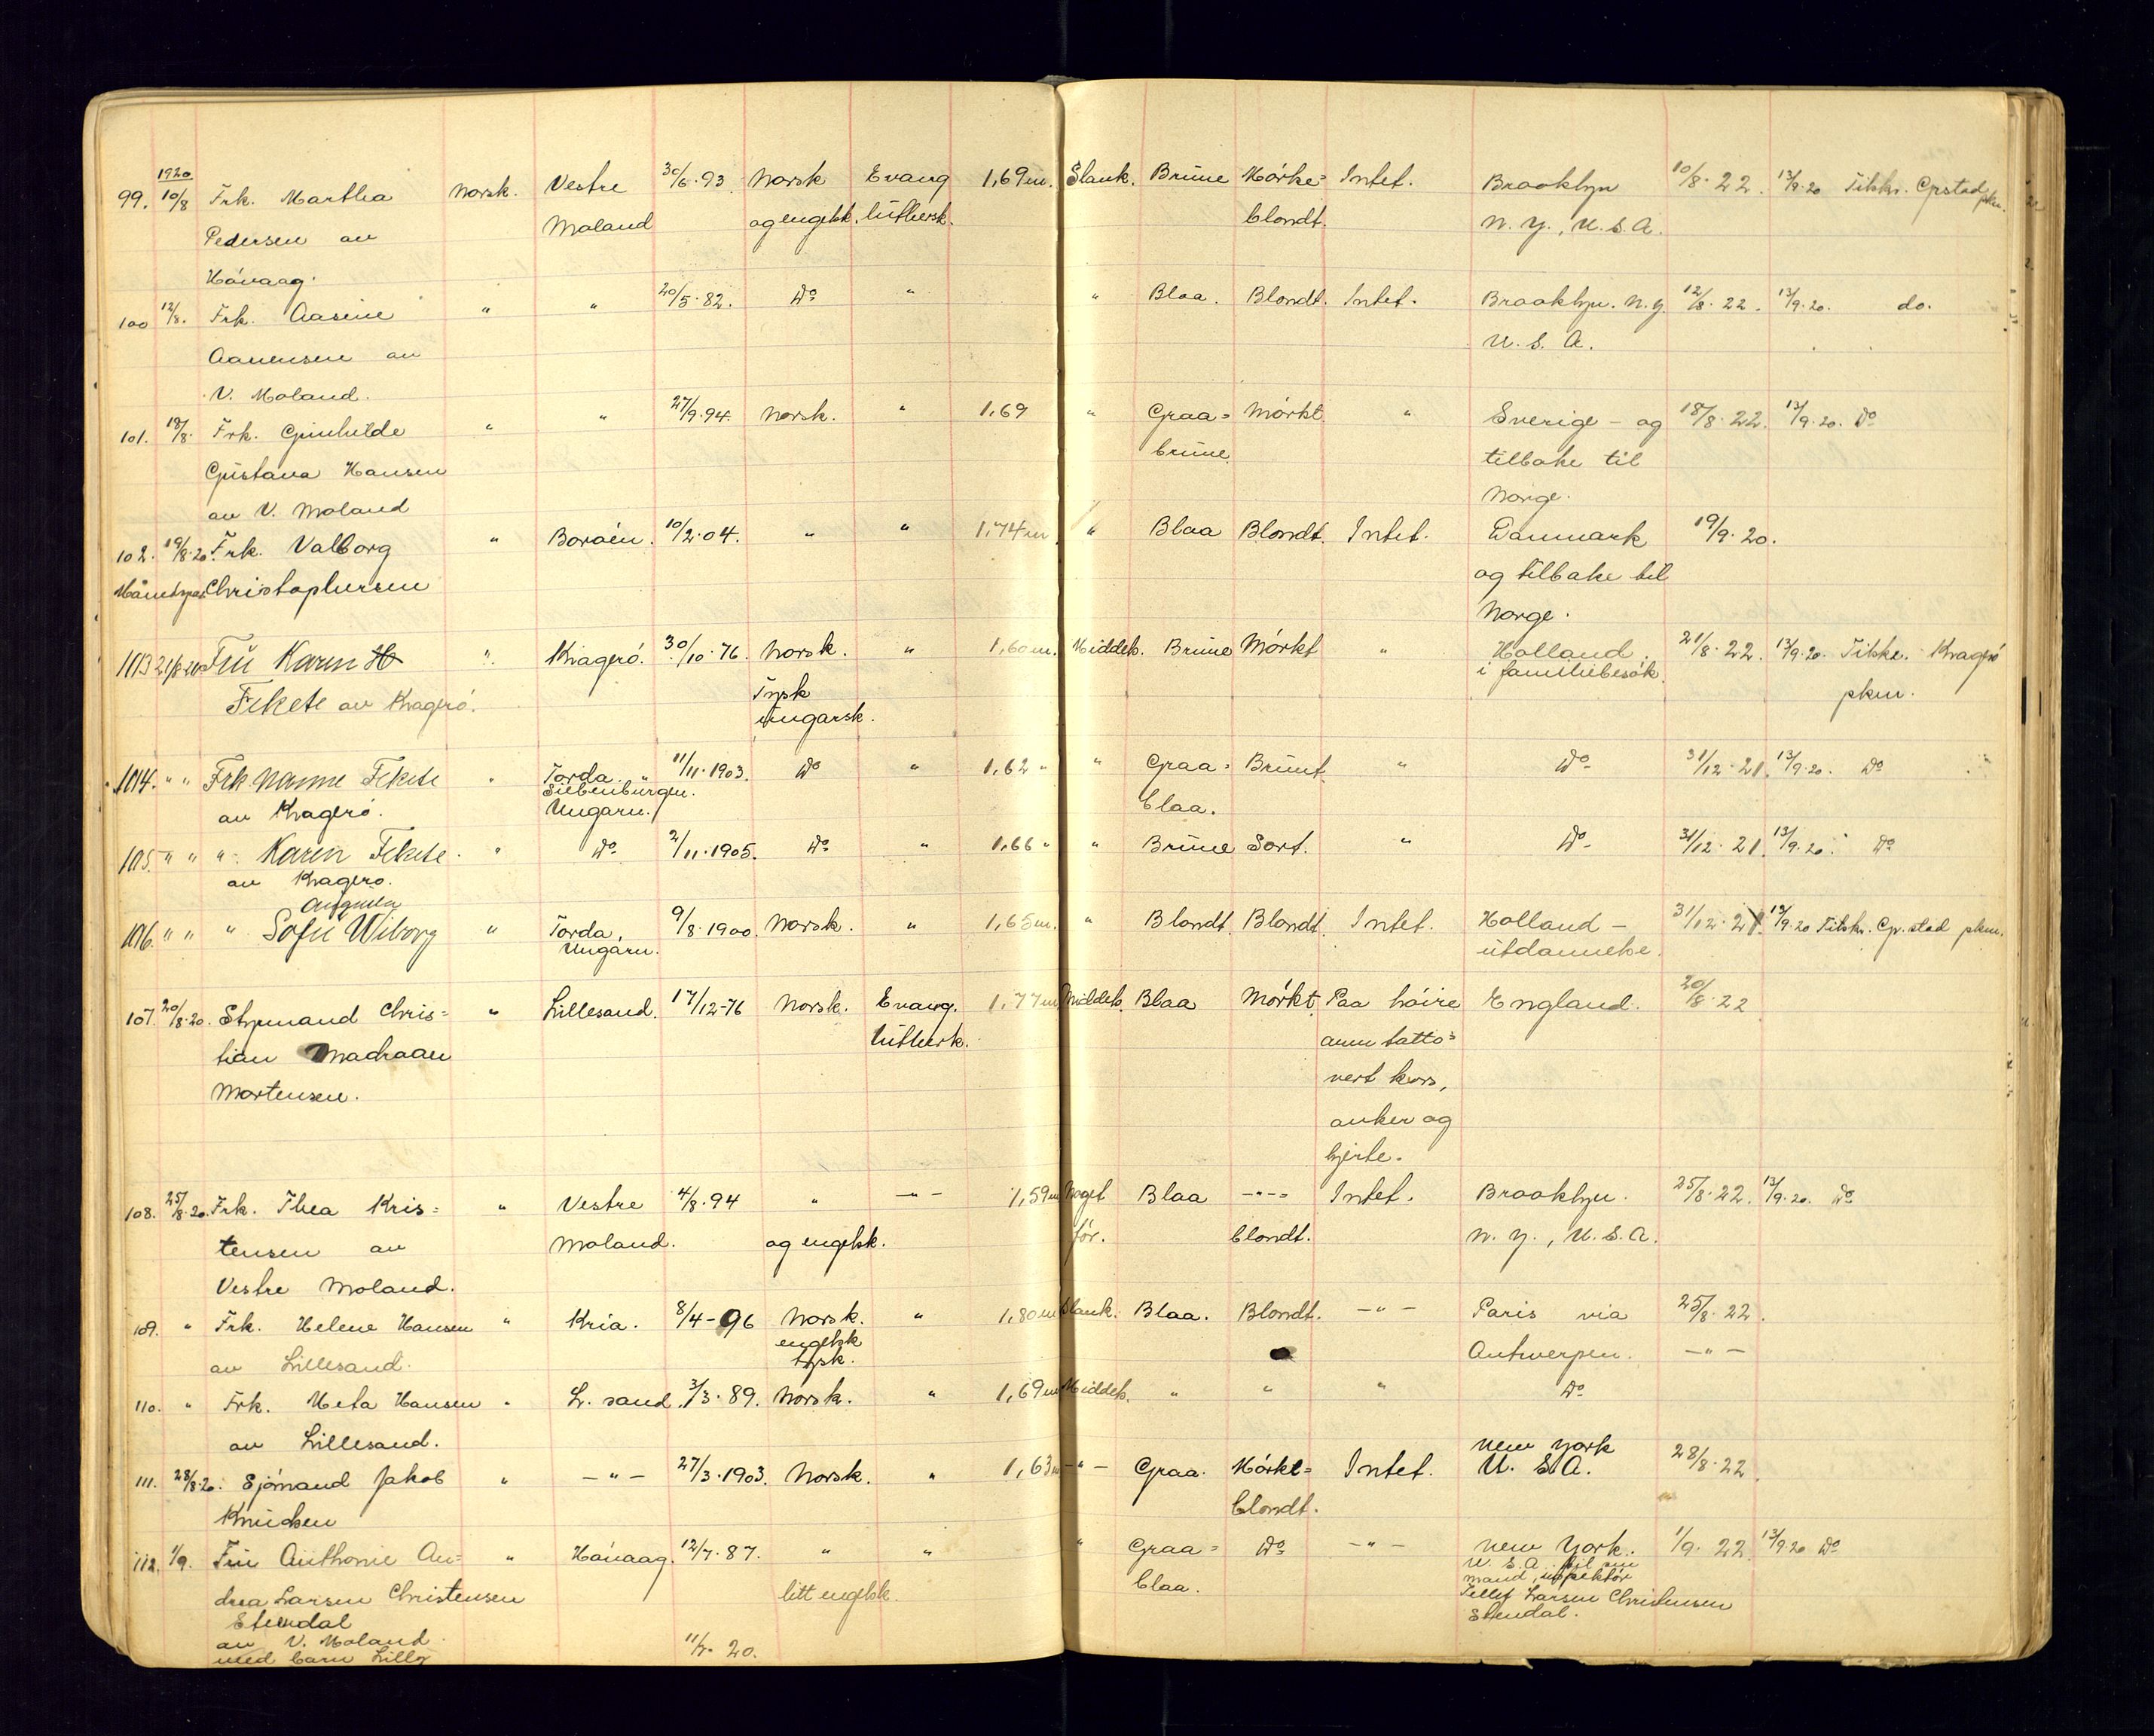 1920
99. 10/8 Frk. Martha Norsk. Vestre 30/6.93 Norsk Evang 1,69m. Slank. Brune Mörke= Intet. Brooklyn 10/8.22. 13/9.20 Tilskr. Grstad pkm.
Pedersen av Moland og engelsk. luthersk. blondt. N.Y., U.S.A.
Hövaag.
100 12/8. Frk. Aasine " " 20/5.82. Do " " Blaa. Blondt. Intet. Brooklyn. N.Y. 12/8.22. 13/9.20. do.
Aanensen av U.S.A.
V. Moland.
101. 18/8. Frk. Gunhilde " " 27/9.94. Norsk. " 1,69 " Graa= Mörkt. " Sverige - og 18/8.22. 13/9.20. Do
Gustava Hansen brune. tilbake til
av V. Moland Norge.
102. 19/8.20. Frk. Valborg " Boröen. 10/2.04. " " 1,74m " Blaa Blondt. Intet. Danmark 19/9.20.
Christophersen og tilbake til
Norge.
103 21/8 20 Fru Karen H " Kragerö. 30/10.76. Norsk. " 1,60m. Middels. Brune Mörkt " Holland. 21/8.22. 13/9.20. Tilskr. Kragerö
Fekete av Kragerö. Tysk i familiebesök. pkm.
ungarsk.
104. " " Frk. Nanne Fekete " Torda. " 11/11.1903. Do " 1,62 " " Graa= Brunt. " Do 31/12.21. 13/9.20. Do
av Kragerö. Siebenburgen. blaa.
Ungarn.
105. " " " Karen Fekete. " Do. 2/11.1905. Do " 1,66 " " Brune Sort. " Do 31/12.21. 13/9.20. Do
av Kragerö.
106. " " " Sofie Wiborg " Torda, 9/8.1900. Norsk. " 1,65m. " Blondt. Blondt. Intet. Holland - 31/12.21. 13/9.20 Tilskr. Gr.stad pkm.
Ungarn. utdannelse.
107. 20/8.20. Styrmand Chris= " Lillesand. 17/12-76 Norsk. Evang. 1,77m Middels. Blaa Mörkt. Paa höire England. 20/8.22
tian Madraan luthersk. arm tatto=
Mortensen. vert kors,
anker og
hjerte.
108. 25/8.20. Frk. Thea Kris= " Vestre 4/8.94 " -"- 1,59m Noget Blaa -"-= Intet. Brooklyn. 25/8.22. 13/9.20. Do
tensen av Moland. og engelsk. för. blondt. N.Y., U.S.A.
Vestre Moland.
109. " Frk. Helene Hansen " Kria. 8/4-96 Norsk. " 1,80m Slank. Blaa. Blondt. -"- Paris via 25/8.22.
av Lillesand. engelsk Antwerpen. -"-
tysk.
110. " Frk. Meta Hansen " L. sand. 3/3.89. Norsk. " 1,69m Middels. " " " Do
av Lillesand.
111. 28/8.20. Sjömand Jakob " -"- 27/3.1903. Norsk. " 1,63m -"- Graa. Mörke= Intet. New York 28/8.22.
Knudsen blondt. U.S.A.
112. 1/9. Fru Anthonie An= " Hövaag. 12/7.87. " " " Graa= Do -"- New York. 1/9.22. 13/9.20 Do
drea Larsen Christensen litt engelsk. blaa. U.S.A. til sin
Stendal mand, inspektör
av V. Moland Tellef Larsen Christensen
med barn Lilly 11/7.20. Stendal.